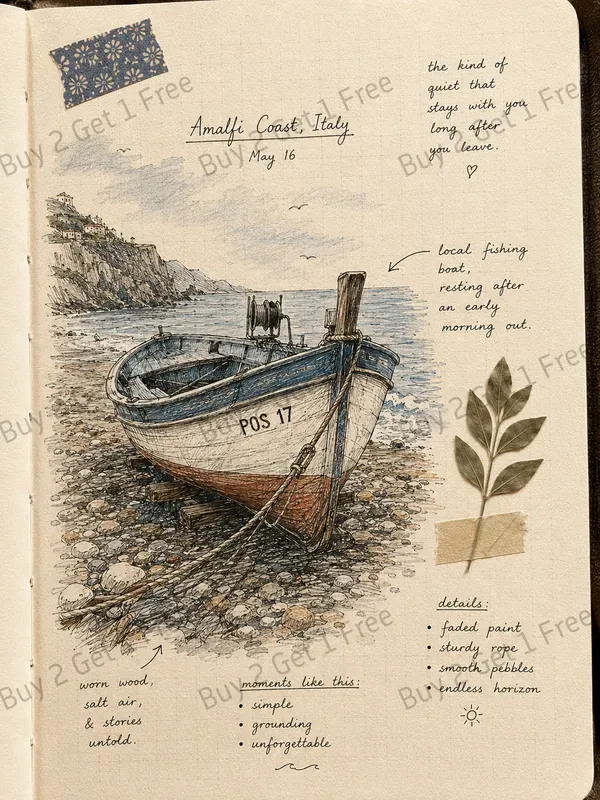 Amalfi Coast, Italy
May 16
the kind of
quiet that
stays with you
long after
you leave.
local fishing
boat,
resting after
an early
morning out.
POS 17
worn wood,
salt air,
& stories
untold.
moments like this:
• simple
• grounding
• unforgettable
details:
• faded paint
• sturdy rope
• smooth pebbles
• endless horizon
Buy 2 Get 1 Free
Buy 2 Get 1 Free
Buy 2 Get 1 Free
Buy 2 Get 1 Free
Buy 2 Get 1 Free
Buy 2 Get 1 Free
Buy 2 Get 1 Free
Buy 2 Get 1 Free
Buy 2 Get 1 Free